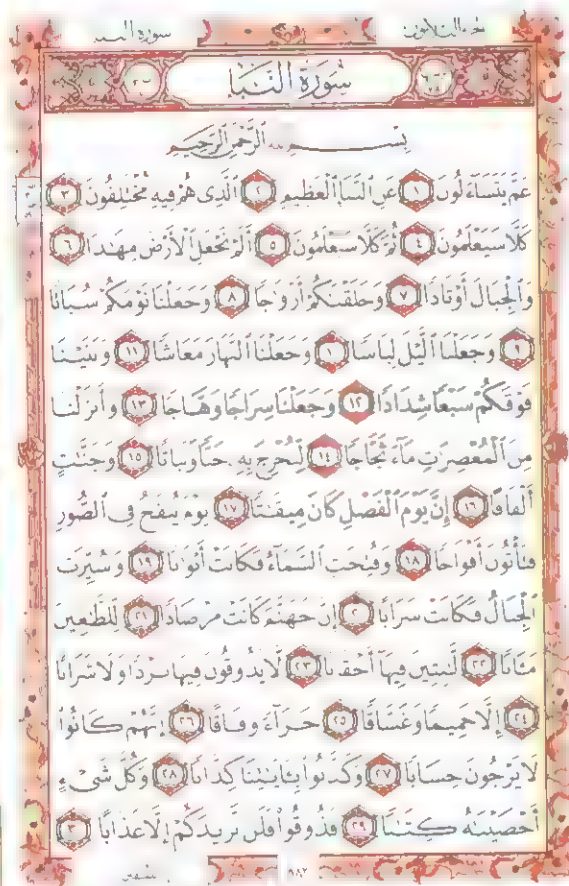 سورة النبأ
الجزء الثلاثون
سُورَةُ النَّبَإِ
بِسْمِ اللَّهِ الرَّحْمَٰنِ الرَّحِيمِ
عَمَّ يَتَسَاءَلُونَ ١ عَنِ النَّبَإِ الْعَظِيمِ ٢ الَّذِي هُمْ فِيهِ مُخْتَلِفُونَ ٣
كَلَّا سَيَعْلَمُونَ ٤ ثُمَّ كَلَّا سَيَعْلَمُونَ ٥ أَلَمْ نَجْعَلِ الْأَرْضَ مِهَٰدًا ٦
وَالْجِبَالَ أَوْتَادًا ٧ وَخَلَقْنَٰكُمْ أَزْوَٰجًا ٨ وَجَعَلْنَا نَوْمَكُمْ سُبَاتًا
٩ وَجَعَلْنَا الَّيْلَ لِبَاسًا ١٠ وَجَعَلْنَا النَّهَارَ مَعَاشًا ١١ وَبَنَيْنَا
فَوْقَكُمْ سَبْعًا شِدَادًا ١٢ وَجَعَلْنَا سِرَاجًا وَهَّاجًا ١٣ وَأَنزَلْنَا
مِنَ الْمُعْصِرَٰتِ مَاءً ثَجَّاجًا ١٤ لِّنُخْرِجَ بِهِ حَبًّا وَنَبَاتًا ١٥ وَجَنَّٰتٍ
أَلْفَافًا ١٦ إِنَّ يَوْمَ الْفَصْلِ كَانَ مِيقَٰتًا ١٧ يَوْمَ يُنفَخُ فِي الصُّورِ
فَتَأْتُونَ أَفْوَاجًا ١٨ وَفُتِحَتِ السَّمَاءُ فَكَانَتْ أَبْوَٰبًا ١٩ وَسُيِّرَتِ
الْجِبَالُ فَكَانَتْ سَرَابًا ٢٠ إِنَّ جَهَنَّمَ كَانَتْ مِرْصَادًا ٢١ لِّلطَّٰغِينَ
مَـَٔابًا ٢٢ لَّٰبِثِينَ فِيهَا أَحْقَابًا ٢٣ لَّا يَذُوقُونَ فِيهَا بَرْدًا وَلَا شَرَابًا
٢٤ إِلَّا حَمِيمًا وَغَسَّاقًا ٢٥ جَزَاءً وِفَاقًا ٢٦ إِنَّهُمْ كَانُوا
لَا يَرْجُونَ حِسَابًا ٢٧ وَكَذَّبُوا بِـَٔايَٰتِنَا كِذَّابًا ٢٨ وَكُلَّ شَيْءٍ
أَحْصَيْنَٰهُ كِتَٰبًا ٢٩ فَذُوقُوا فَلَن نَّزِيدَكُمْ إِلَّا عَذَابًا ٣٠